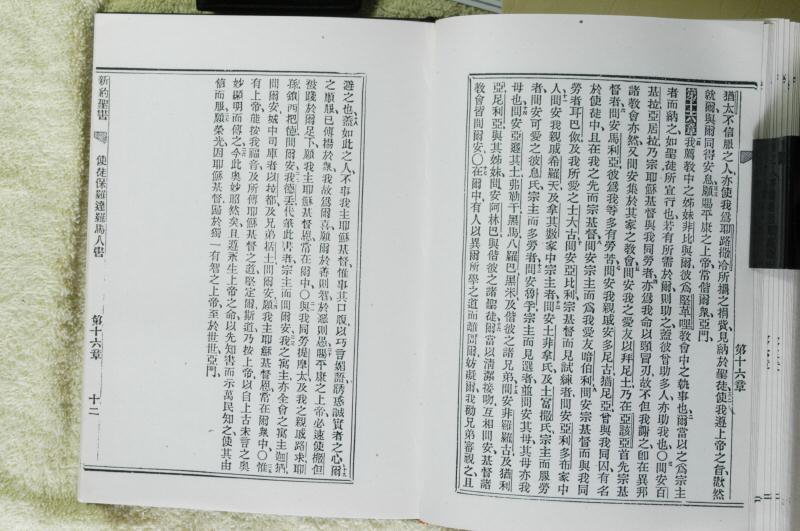 第十六章
猶太不信服之人亦使我爲耶路撒冷所攝之捐貲見納於聖徒使我遵上帝之旨歡然
就爾與爾同得安息願賜平康之上帝常偕爾衆亞門
第十六章我薦教中之姊妹非比與爾彼爲堅革哩教會中之執事也爾當以之爲宗主
者而納之如聖徒所宜行也若有所需於爾則助之蓋彼曾助多人亦助我也〇問安百
基拉亞居拉乃宗耶穌基督與我同勞者亦爲我命以頸冒刃故不但我謝之卽在異邦
諸教會亦然又問安集於其家之教會問安我之愛友以拜尼土乃在亞該亞首先宗基
督者問安馬利亞彼爲我等多有勞苦問安我親戚安多尼古猶尼亞曾與我同囚有名
於使徒中且在我之先而宗基督問安宗主而爲我愛友暗伯利問安宗基督而與我同
勞者耳巴俶及我所愛之士大古問安亞比利宗基督而見試練者問安亞利多布家中
人問安我親戚希羅天及拿其數家中宗主者問安土非拿氏及土富撒氏宗主而服勞
者問安可愛之彼息氏宗主而多勞者問安魯孚宗主而見選者並問安其母其母亦我
母也問安亞遜其土弗勒干黑馬八羅巴黑米及偕彼之諸兄弟問安非羅羅古及猶利
亞尼利亞與其姊妹問安阿林巴與偕彼之諸聖徒爾當以清潔接吻互相問安基督諸
教會皆問爾安〇在爾中有人以異爾所學之道而離間爾妨礙爾我勸兄弟審視之且
避之也蓋如此之人不事我主耶穌基督惟事其口腹以巧言媚語誘惑誠實者之心爾
之順服已傳揚於衆我故爲爾喜願爾於善則智於惡則愚賜平康之上帝必速使撒但
被踐於爾足下願我主耶穌基督恩常在爾中〇與我同勞提摩太及我之親戚路求耶
孫鎖西把德問爾安我德丟代筆此書者宗主而問爾安我之寓主亦全會之寓主迦猶
問爾安城中司庫者以拉都及兄弟括土問爾安願我主耶穌基督恩常在爾衆中〇惟
有上帝能按我福音及所傳耶穌基督之道堅定爾斯道乃按上帝以自上古未言之奧
妙顯明而傳之今此奧妙昭然矣且遵永生上帝之命以先知書而示萬民知之使其由
信而服願榮光因耶穌基督歸於獨一有智之上帝至於世世亞門
新約聖書 使徒保羅達羅馬人書 第十六章 十二